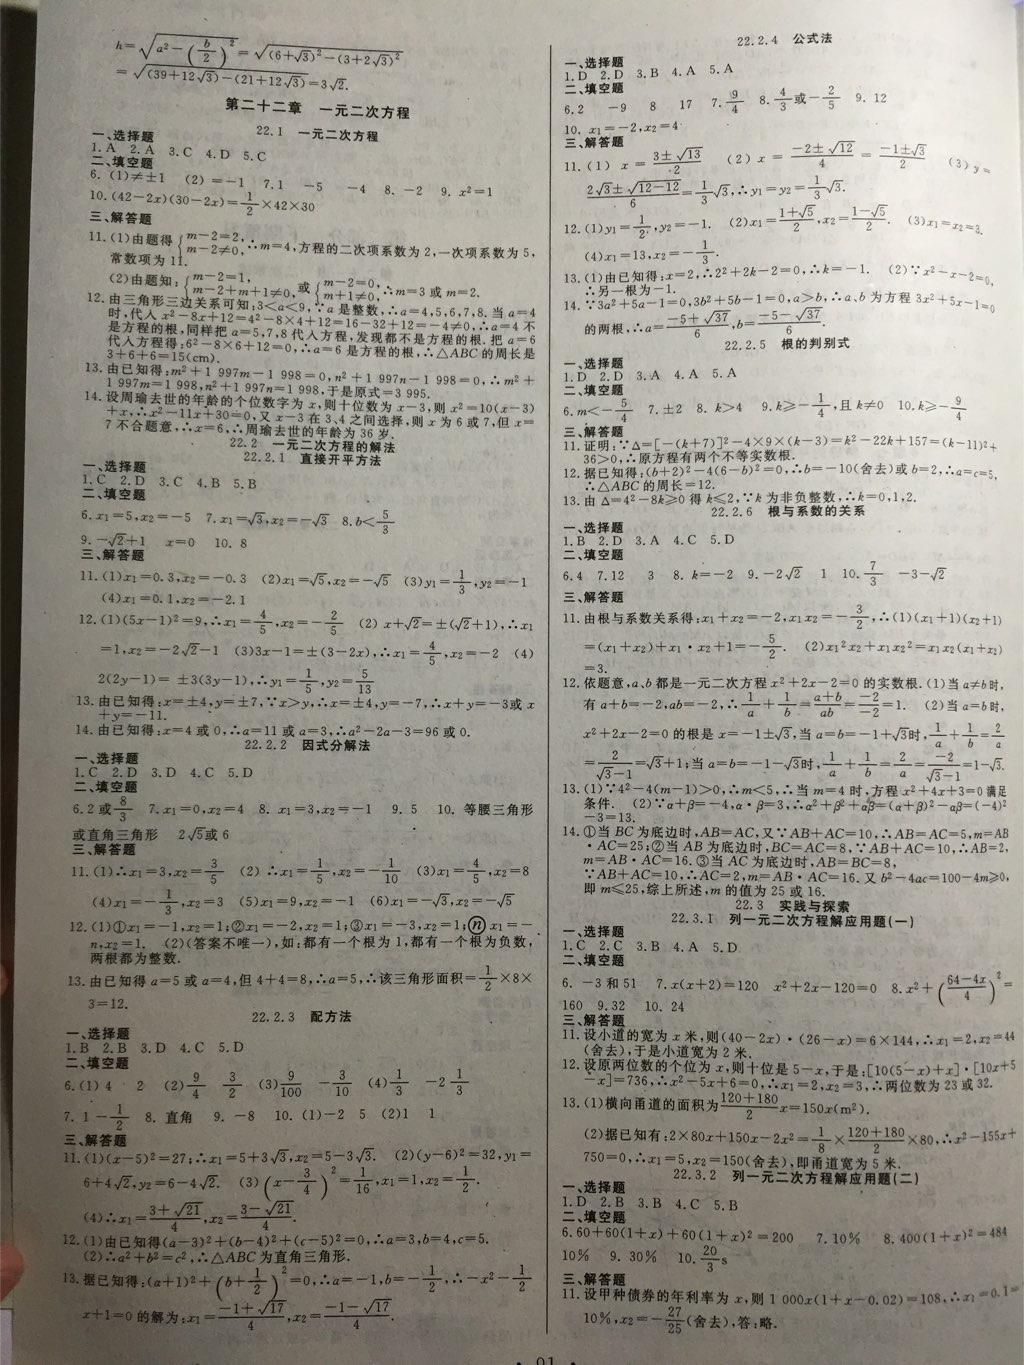 h=√(a²-(b/2)²)=√((6+√3)²-(3+2√3)²)
=√((39+12√3)-(21+12√3))=3√2.
第二十二章 一元二次方程
22.1 一元二次方程
一、选择题
1.A 2.A 3.C 4.D 5.C
二、填空题
6.(1)≠±1 (2)=-1 7.1 -5 -4 8.-2 9.x²=1
10.(42-2x)(30-2x)=1/2×42×30
三、解答题
11.(1)由题得{m-2=2, m-2≠0, ∴m=4,方程的二次项系数为2,一次项系数为5,
常数项为11.
(2)由题知:{m-2=1, m-2+m+1≠0, 或{m-2=0, m+1≠0, ∴m=3或m=2.
12.由三角形三边关系可知:3<a<9,∵a是整数,∴a=4,5,6,7,8.当a=4
时,代入x²-8x+12=4²-8×4+12=16-32+12=-4≠0,∴a=4不
是方程的根,同样把a=5,7,8代入方程,发现都不是方程的根.把a=6
代入方程得:6²-8×6+12=0,∴a=6是方程的根,∴△ABC的周长是
3+6+6=15(cm).
13.由已知得:m²+1 997m-1 998=0,n²+1 997n-1 998=0,∴m²+
1 997m=1 998,n²+1 997n=1 998,于是原式=3 995.
14.设周瑜去世的年龄的个位数字为x,则十位数为x-3,则x²=10(x-3)
+x,∴x²-11x+30=0,又x-3在3、4之间选择,则x为6或7,但x=
7不合题意,∴x=6,∴周瑜去世的年龄为36岁.
22.2 一元二次方程的解法
22.2.1 直接开平方法
一、选择题
1.C 2.D 3.C 4.B 5.B
二、填空题
6.x₁=5,x₂=-5 7.x₁=√3,x₂=-√3 8.b<5/3
9.-√2+1 x=0 10.8
三、解答题
11.(1)x₁=0.3,x₂=-0.3 (2)x₁=√5,x₂=-√5 (3)y₁=1/3,y₂=-1
(4)x₁=0.1,x₂=-2.1
12.(1)(5x-1)²=9,∴x₁=4/5,x₂=-2/5 (2)x+√2=±(√2+1),∴x₁
=1,x₂=-2√2-1 (3)3x-1=±(3-2x),∴x₁=4/5,x₂=-2 (4)
2(2y-1)=±3(3y-1),∴y₁=1/5,y₂=5/13
13.由已知得:x=±4,y=±7,∵x>y,∴x=±4,y=-7,∴x+y=-3或x
+y=-11.
14.由已知得:x=4或0,∴a=11或a=3,∴a²-2a-3=96或0.
22.2.2 因式分解法
一、选择题
1.C 2.D 3.D 4.C 5.D
二、填空题
6.2或8/3 7.x₁=0,x₂=4 8.x₁=3,x₂=-1 9.5 10.等腰三角形
或直角三角形 2√5或6
三、解答题
11.(1)∴x₁=3,x₂=3/5 (2)∴x₁=-1/5,x₂=-1/10 (3)x₁=4/5,x₂=8
(4)x₁=-1/3,x₂=3 (5)x₁=9,x₂=-1 (6)x₁=-√3,x₂=-√5
12.(1)①x₁=-1,x₂=1;②x₁=-2,x₂=1;③x₁=-3,x₂=1;ⓝx₁=-
n,x₂=1. (2)(答案不唯一),如:都有一个根为1,都有一个根为负数,
两根都为整数.
13.由已知得a=5或a=4,但4+4=8,∴a=5,∴该三角形面积=1/2×8×
3=12.
22.2.3 配方法
一、选择题
1.B 2.B 3.D 4.C 5.D
二、填空题
6.(1)4 2 (2)9/4 3/2 (3)9/100 -3/10 (4)1/3 -2 1/3
7.1 -1/2 8.直角 9.-8 10.(1)-2 5 (2)1 1
三、解答题
11.(1)(x-5)²=27;∴x₁=5+3√3,x₂=5-3√3. (2)(y-6)²=32,y₁=
6+4√2,y₂=6-4√2. (3)(x-3/4)²=1/16,x₁=1,x₂=1/2.
(4)∴x₁=(3+√21)/4,x₂=(3-√21)/4.
12.(1)由已知得(a-3)²+(b-4)²+(c-5)²=0,∴a=3,b=4,c=5.
(2)∴a²+b²=c²,∴△ABC为直角三角形.
13.据已知得:(a+1)²+(b+1/2)²=0,∴a=-1,b=-1/2,∴-x²-1/2
x+1=0的解为:x₁=(-1+√17)/4,x₂=(-1-√17)/4.
22.2.4 公式法
一、选择题
1.D 2.D 3.B 4.A 5.A
二、填空题
6.2 -9 8 17 7.9/4 8.4/3或-2/5 9.12
10.x₁=-2,x₂=4
三、解答题
11.(1)x=(3±√13)/2 (2)x=(-2±√12)/4=(-1±√3)/2 (3)y=
(2√3±√(12-12))/6=1/3√3,∴y₁=y₂=1/3√3.
12.(1)y₁=1/2,y₂=-1. (2)x₁=(1+√5)/2,x₂=(1-√5)/2. (3)x₁=x₂=3.
(4)x₁=13,x₂=-1/3.
13.(1)由已知得:x=2,∴2²+2k-2=0,∴k=-1. (2)∵x²-x-2=0,
∴另一根为-1.
14.∵3a²+5a-1=0,3b²+5b-1=0,a>b,∴a、b为方程3x²+5x-1=0
的两根,∴a=(-5+√37)/6,b=(-5-√37)/6.
22.2.5 根的判别式
一、选择题
1.D 2.D 3.A 4.A 5.A
二、填空题
6.m<-5/4 7.±2 8.k>4 9.k≥-1/4,且k≠0 10.k≥-9/4
三、解答题
11.证明:∵△=[-(k+7)]²-4×9×(k-3)=k²-22k+157=(k-11)²+
36>0,∴原方程有两个不等实数根.
12.据已知得:(b+2)²-4(6-b)²=0,∴b=-10(舍去)或b=2,∴a=c=5,
∴△ABC的周长=12.
13.由△=4²-8k≥0得k≤2,∵k为非负整数,∴k=0,1,2.
22.2.6 根与系数的关系
一、选择题
1.B 2.D 3.A 4.C 5.D
二、填空题
6.4 7.12 3 8.k=-2 9.-2√2 1 10.7/3 -3-√2
三、解答题
11.由根与系数关系得:x₁+x₂=-2,x₁x₂=-3/2,∴(1)(x₁+1)(x₂+1)
=(x₁+x₂)+x₁·x₂+1=-5/2. (2)x₁²x₂+x₁x₂²=x₁x₂(x₁+x₂)
=3.
12.依题意,a、b都是一元二次方程x²+2x-2=0的实数根.(1)当a≠b时,
有a+b=-2,ab=-2,∴1/a+1/b=(a+b)/ab=-2/-2=1. (2)当a=b时,
x²+2x-2=0的根是x=-1±√3,当a=b=-1+√3时,1/a+1/b=2/a
=2/(√3-1)=√3+1;当a=b=-1-√3时,1/a+1/b=2/a=-2/(√3-1)=1-√3.
13.(1)∵4²-4(m-1)>0,∴m<5,∴当m=4时,方程x²+4x+3=0满足
条件. (2)∵α+β=-4,α·β=3,∴α²+β²+αβ=(α+β)²-αβ=(-4)²
-3=13.
14.①当BC为底边时,AB=AC,又∵AB+AC=10,∴AB=AC=5,m=AB
·AC=25;②当AB为底边时,BC=AC=8,∵AB+AC=10,∴AB=2,
m=AB·AC=16.③当AC为底边时,AB=BC=8,
∵AB+AC=10,∴AC=2,m=AB·AC=16.又b²-4ac=100-4m≥0,
即m≤25,综上所述,m的值为25或16.
22.3 实践与探索
22.3.1 列一元二次方程解应用题(一)
一、选择题
1.C 2.C 3.B 4.A 5.D
二、填空题
6.-3和51 7.x(x+2)=120 x²+2x-120=0 8.x²+((64-4x)/4)²=
160 9.32 10.24
三、解答题
11.设小道的宽为x米,则(40-2x)·(26-x)=6×144,∴x₁=2,x₂=44
(舍去),于是小道宽为2米.
12.设原两位数的个位为x,则十位是5-x,于是:[10(5-x)+x]·[10x+5
-x]=736,∴x²-5x+6=0,∴x₁=2,x₂=3,∴两位数为23或32.
13.(1)横向甬道的面积为(120+180)/2x=150x(m²).
(2)据已知有:2×80x+150x-2x²=1/8×(120+180)/2×80,∴x²-155x+
750=0,∴x₁=5,x₂=150(舍去),即甬道宽为5米.
22.3.2 列一元二次方程解应用题(二)
一、选择题
1.D 2.B 3.B 4.C 5.B
二、填空题
6.60+60(1+x)+60(1+x)²=200 7.10% 8.400(1+x)²=484
10% 9.30% 10.20/3 s
三、解答题
11.设甲种债券的年利率为x,则1 000x(1+x-0.02)=108,∴x₁=0.1=
10%,x₂=-27/25(舍去),答:略.
• 91 •